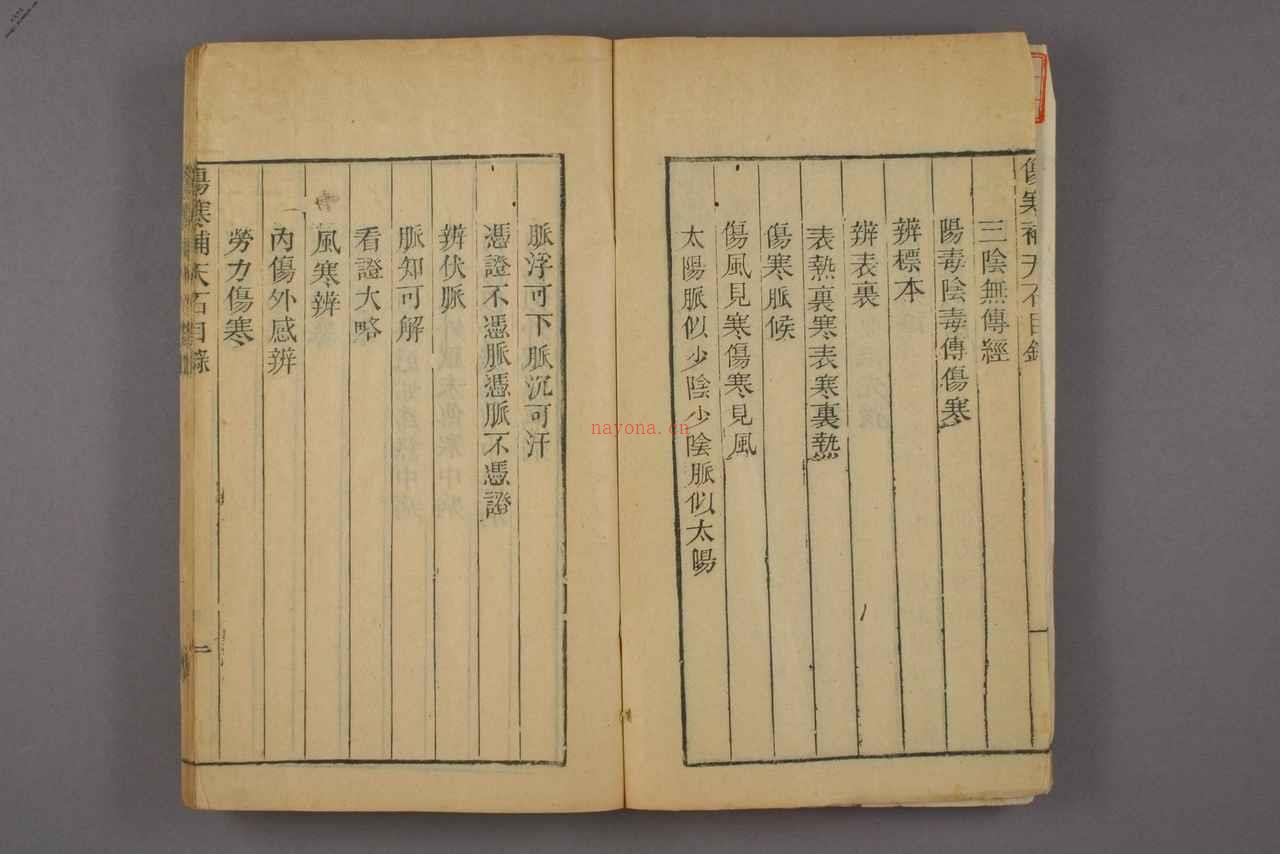 傷寒補天石目錄
三陰無傳經
陽毒陰毒傳傷寒
辨標本
辨表裏
表熱裏寒表寒裏熱
傷寒脈候
傷風見寒傷寒見風
太陽脈似少陰少陰脈似太陽
脈浮可下脈沉可汗
憑證不憑脈憑脈不憑證
辨伏脈
脈知可解
看證大略
風寒辨
內傷外感辨
勞力傷寒
傷寒補天石目錄
一
nayona.cn